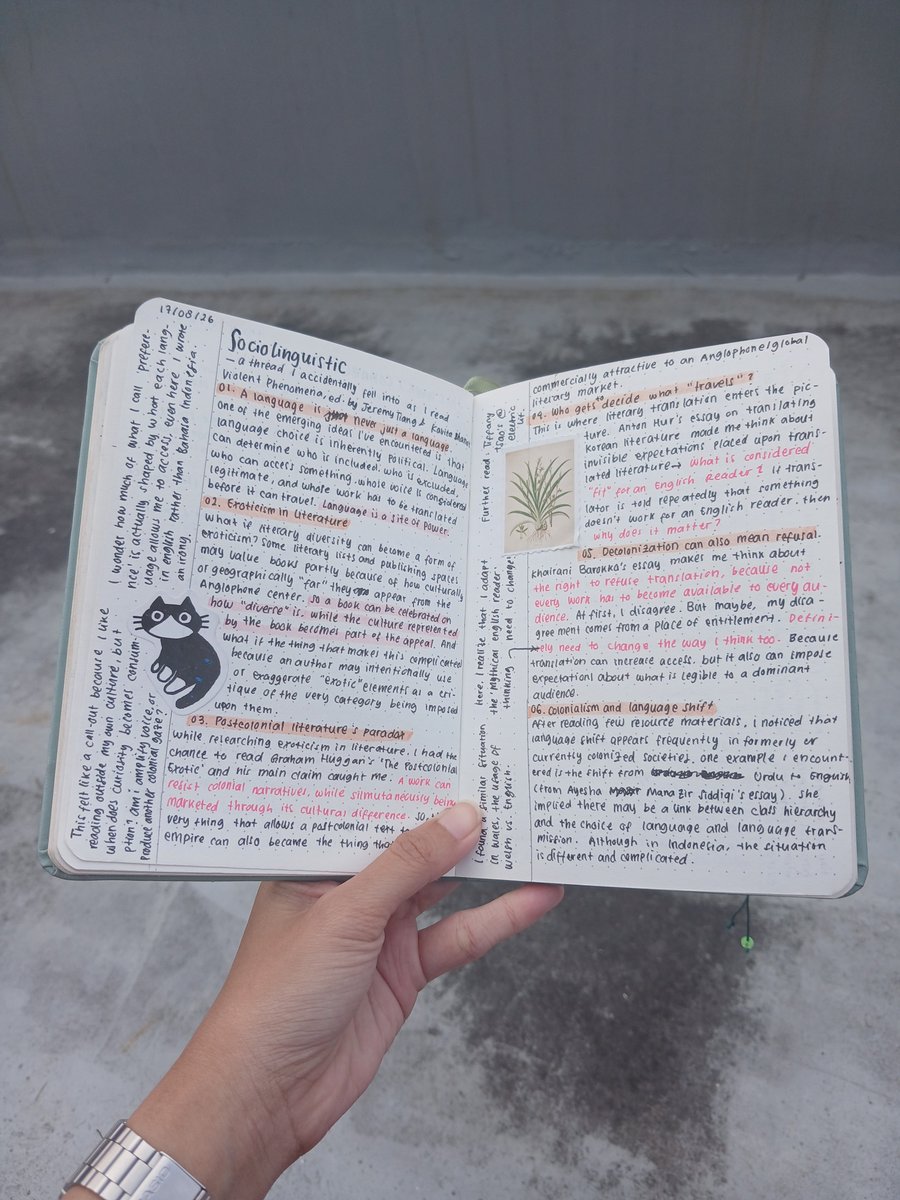 17/08/26
I wonder how much of what I call prefere-
nce' is actually shaped by what each lang-
uage allows me to access, even here I wrote
in english rather than Bahasa Indonesia.
an irony.
This felt like a call-out because I like
reading outside my own culture, but
when does curiosity becomes consum-
ption? am i amplify voice, or
produce another colonial gaze?
Sociolinguistic
— a thread I accidentally fell into as I read
Violent Phenomena, ed. by Jeremy Tiang & Kavita Bhanot
01. A language is never just a language
One of the emerging ideas I've encountered is that
language choice is inherently political. Language
can determine who is included, who is excluded,
who can access something, whose voice is considered
legitimate, and whole work has to be translated
before it can travel. Language is a site of power.
02. Exoticism in Literature
What if literary diversity can become a form of
exoticism? Some literary lists and publishing spaces
may value books partly because of how culturally
or geographically "far" they appear from the
Anglophone center. So a book can be celebrated on
how "diverse" is, while the culture represented
by the book becomes part of the appeal. And
what if the thing that makes this complicated
because an author may intentionally use
or exaggerate "exotic" elements as a cri-
tique of the very category being imposed
upon them.
03. Postcolonial literature's paradox
While researching exoticism in literature, I had the
chance to read Graham Huggan's 'The Postcolonial
Exotic' and his main claim caught me. A work can
resist colonial narratives, while silmutaneously being
marketed through its cultural difference. So,
very thing that allows a postcolonial text
empire can also become the thing that
Further read: Tiffany
Tsao's @
electric
lit.
Here, I realize that I adapt
the 'mythical english reader'
thinking → need to change!
I found a similar situation
in Wales, the usage of
Welsh vs. English.
commercially attractive to an Anglophone/global
literary market.
04. Who gets to decide what "travels"?
This is where literary translation enters the pic-
ture. Anton Hur's essay on translating
Korean literature made me think about
invisible expectations placed upon trans-
lated literature → What is considered
"fit" for an English Reader? If trans-
lator is told repeatedly that something
doesn't work for an English reader. then
why does it matter?
05. Decolonization can also mean refusal.
Khairani Barokka's essay makes me think about
the right to refuse translation, because not
every work has to become available to every au-
dience. At first, I disagree. But maybe, my disa-
greement comes from a place of entitlement. Definit-
ely need to change the way I think too. Because
translation can increase access. but it also can impose
expectations about what is legible to a dominant
audience.
06. Colonialism and language shift
After reading few resource materials, I noticed that
language shift appears frequently in formerly or
currently colonized societies. One example I encount-
ered is the shift from Urdu to English
(from Ayesha Manazir Siddiqi's essay). She
implied there may be a link between class hierarchy
and the choice of language and language trans-
mission. Although in Indonesia, the situation
is different and complicated.